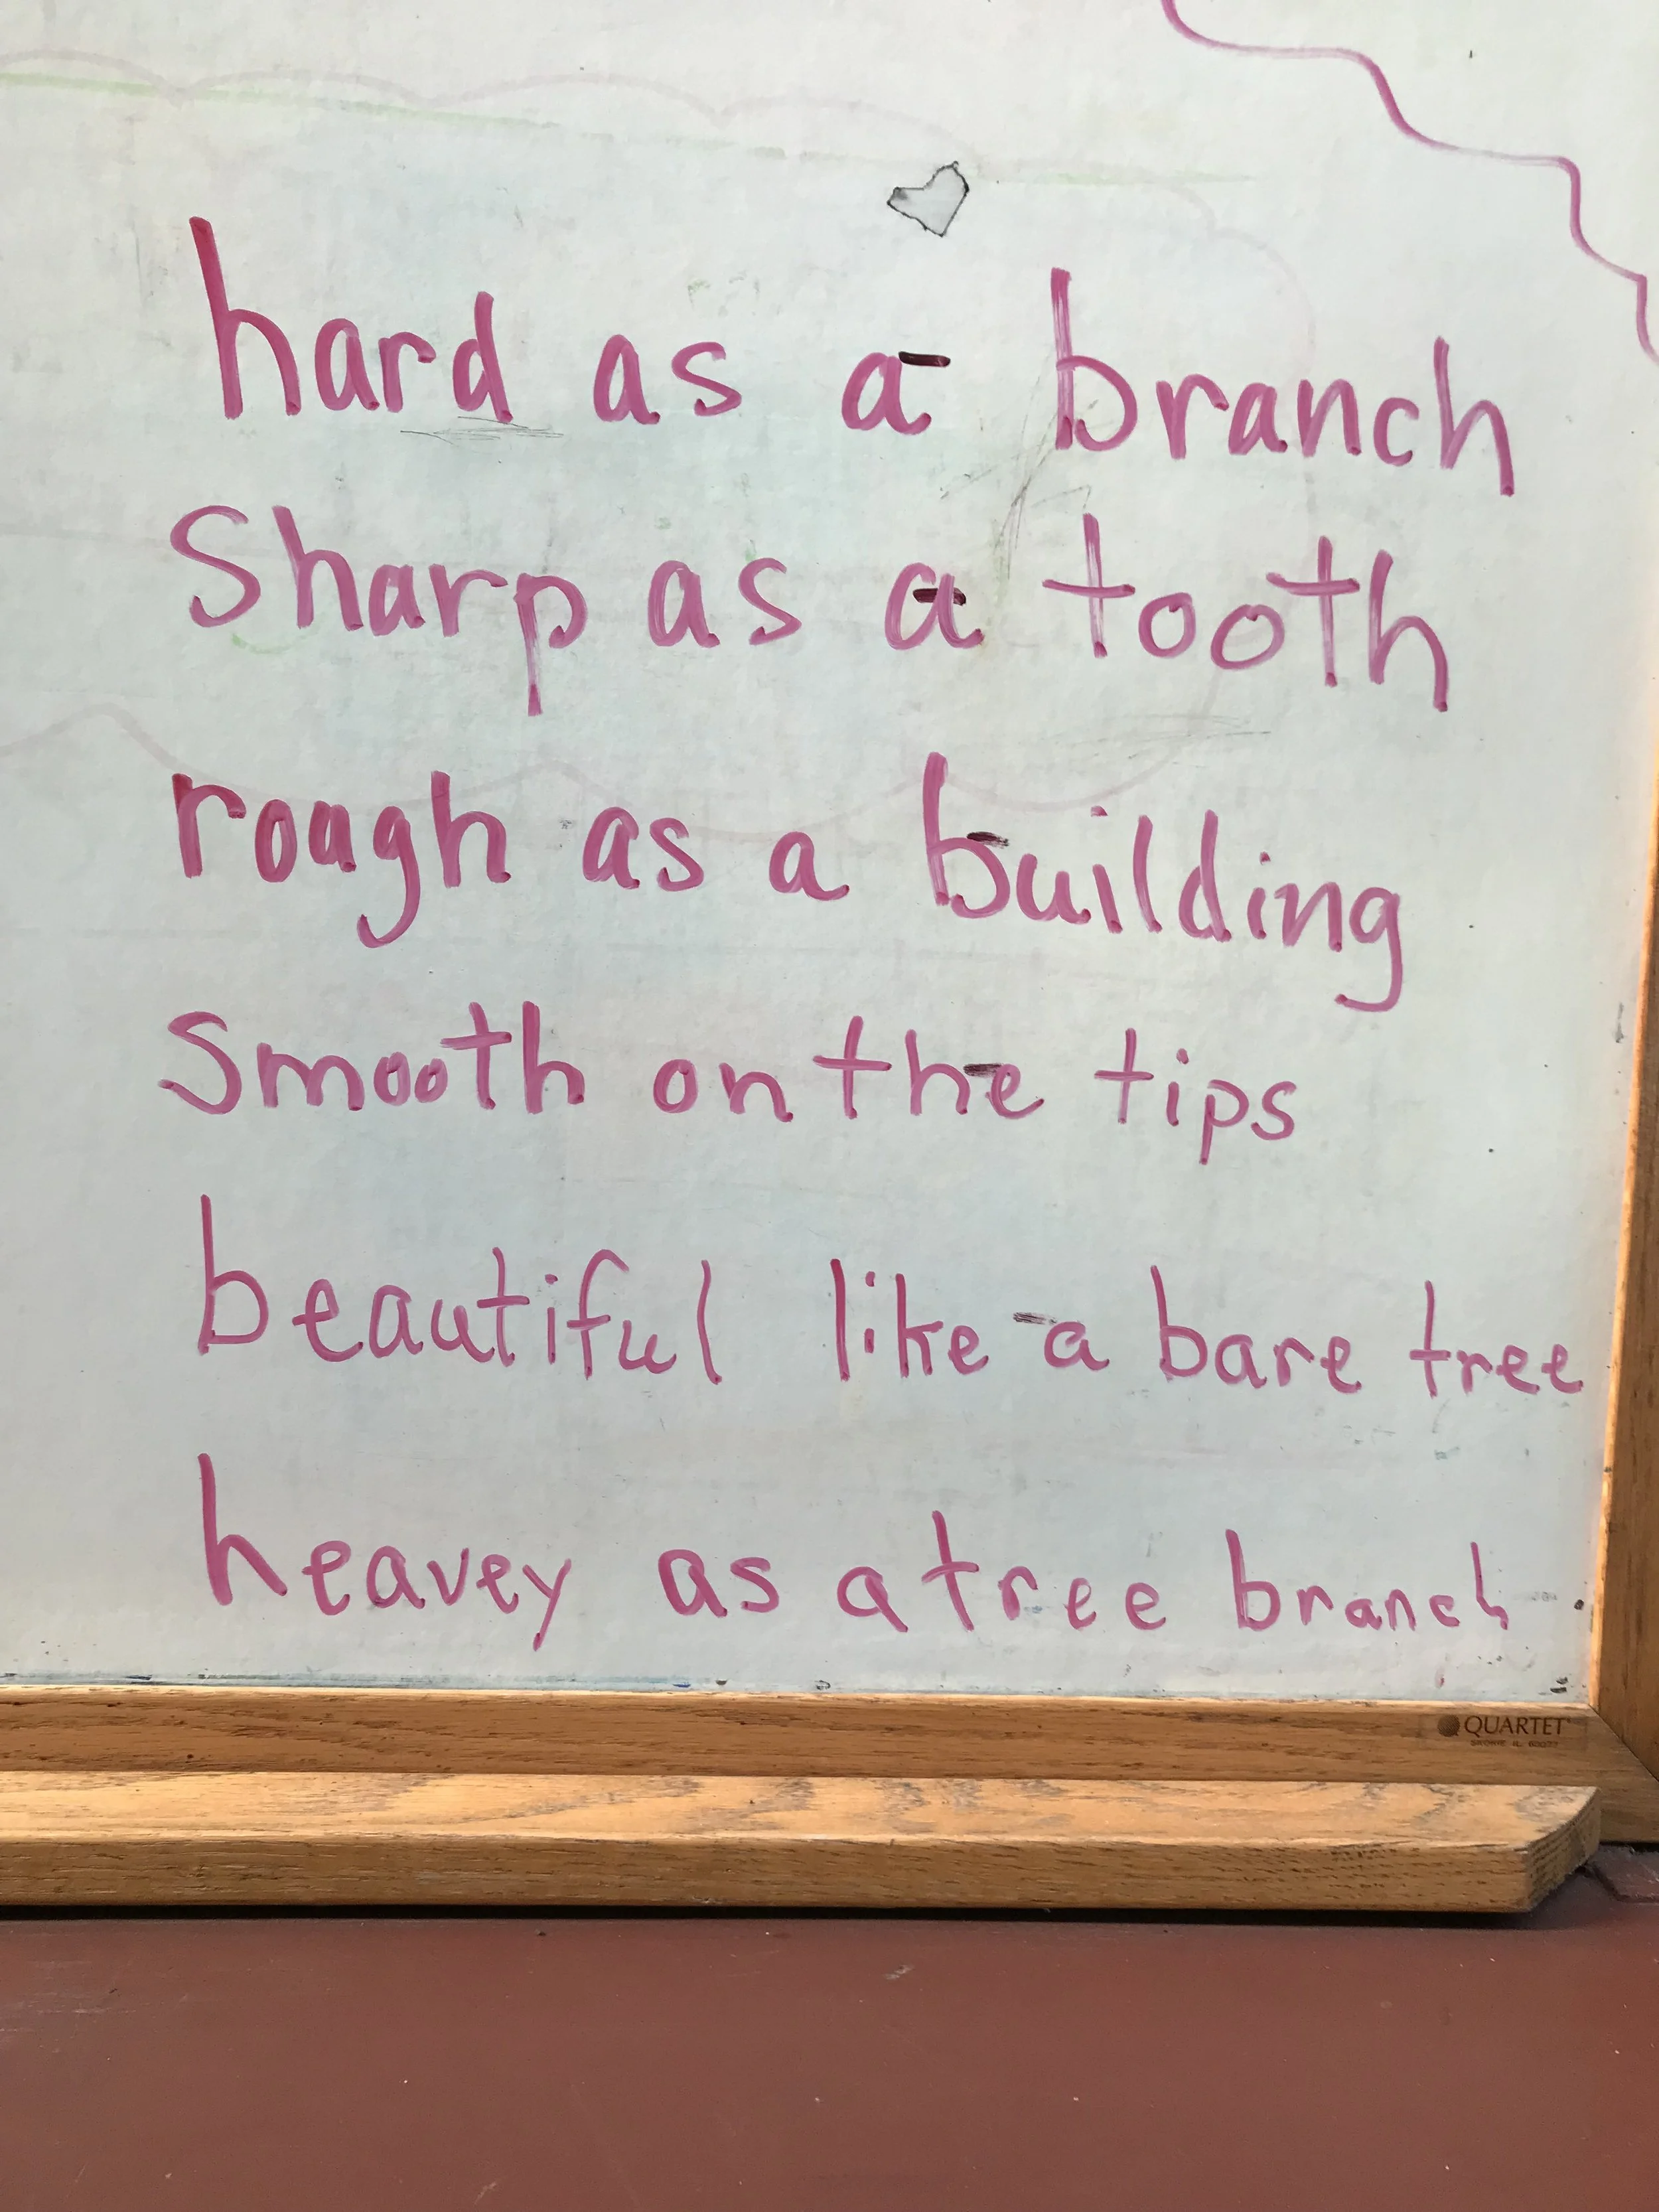 hard as a branch
Sharp as a tooth
rough as a building
Smooth on the tips
beautiful like a bare tree
heavey as a tree branch
QUARTET
SKOKIE IL 60077